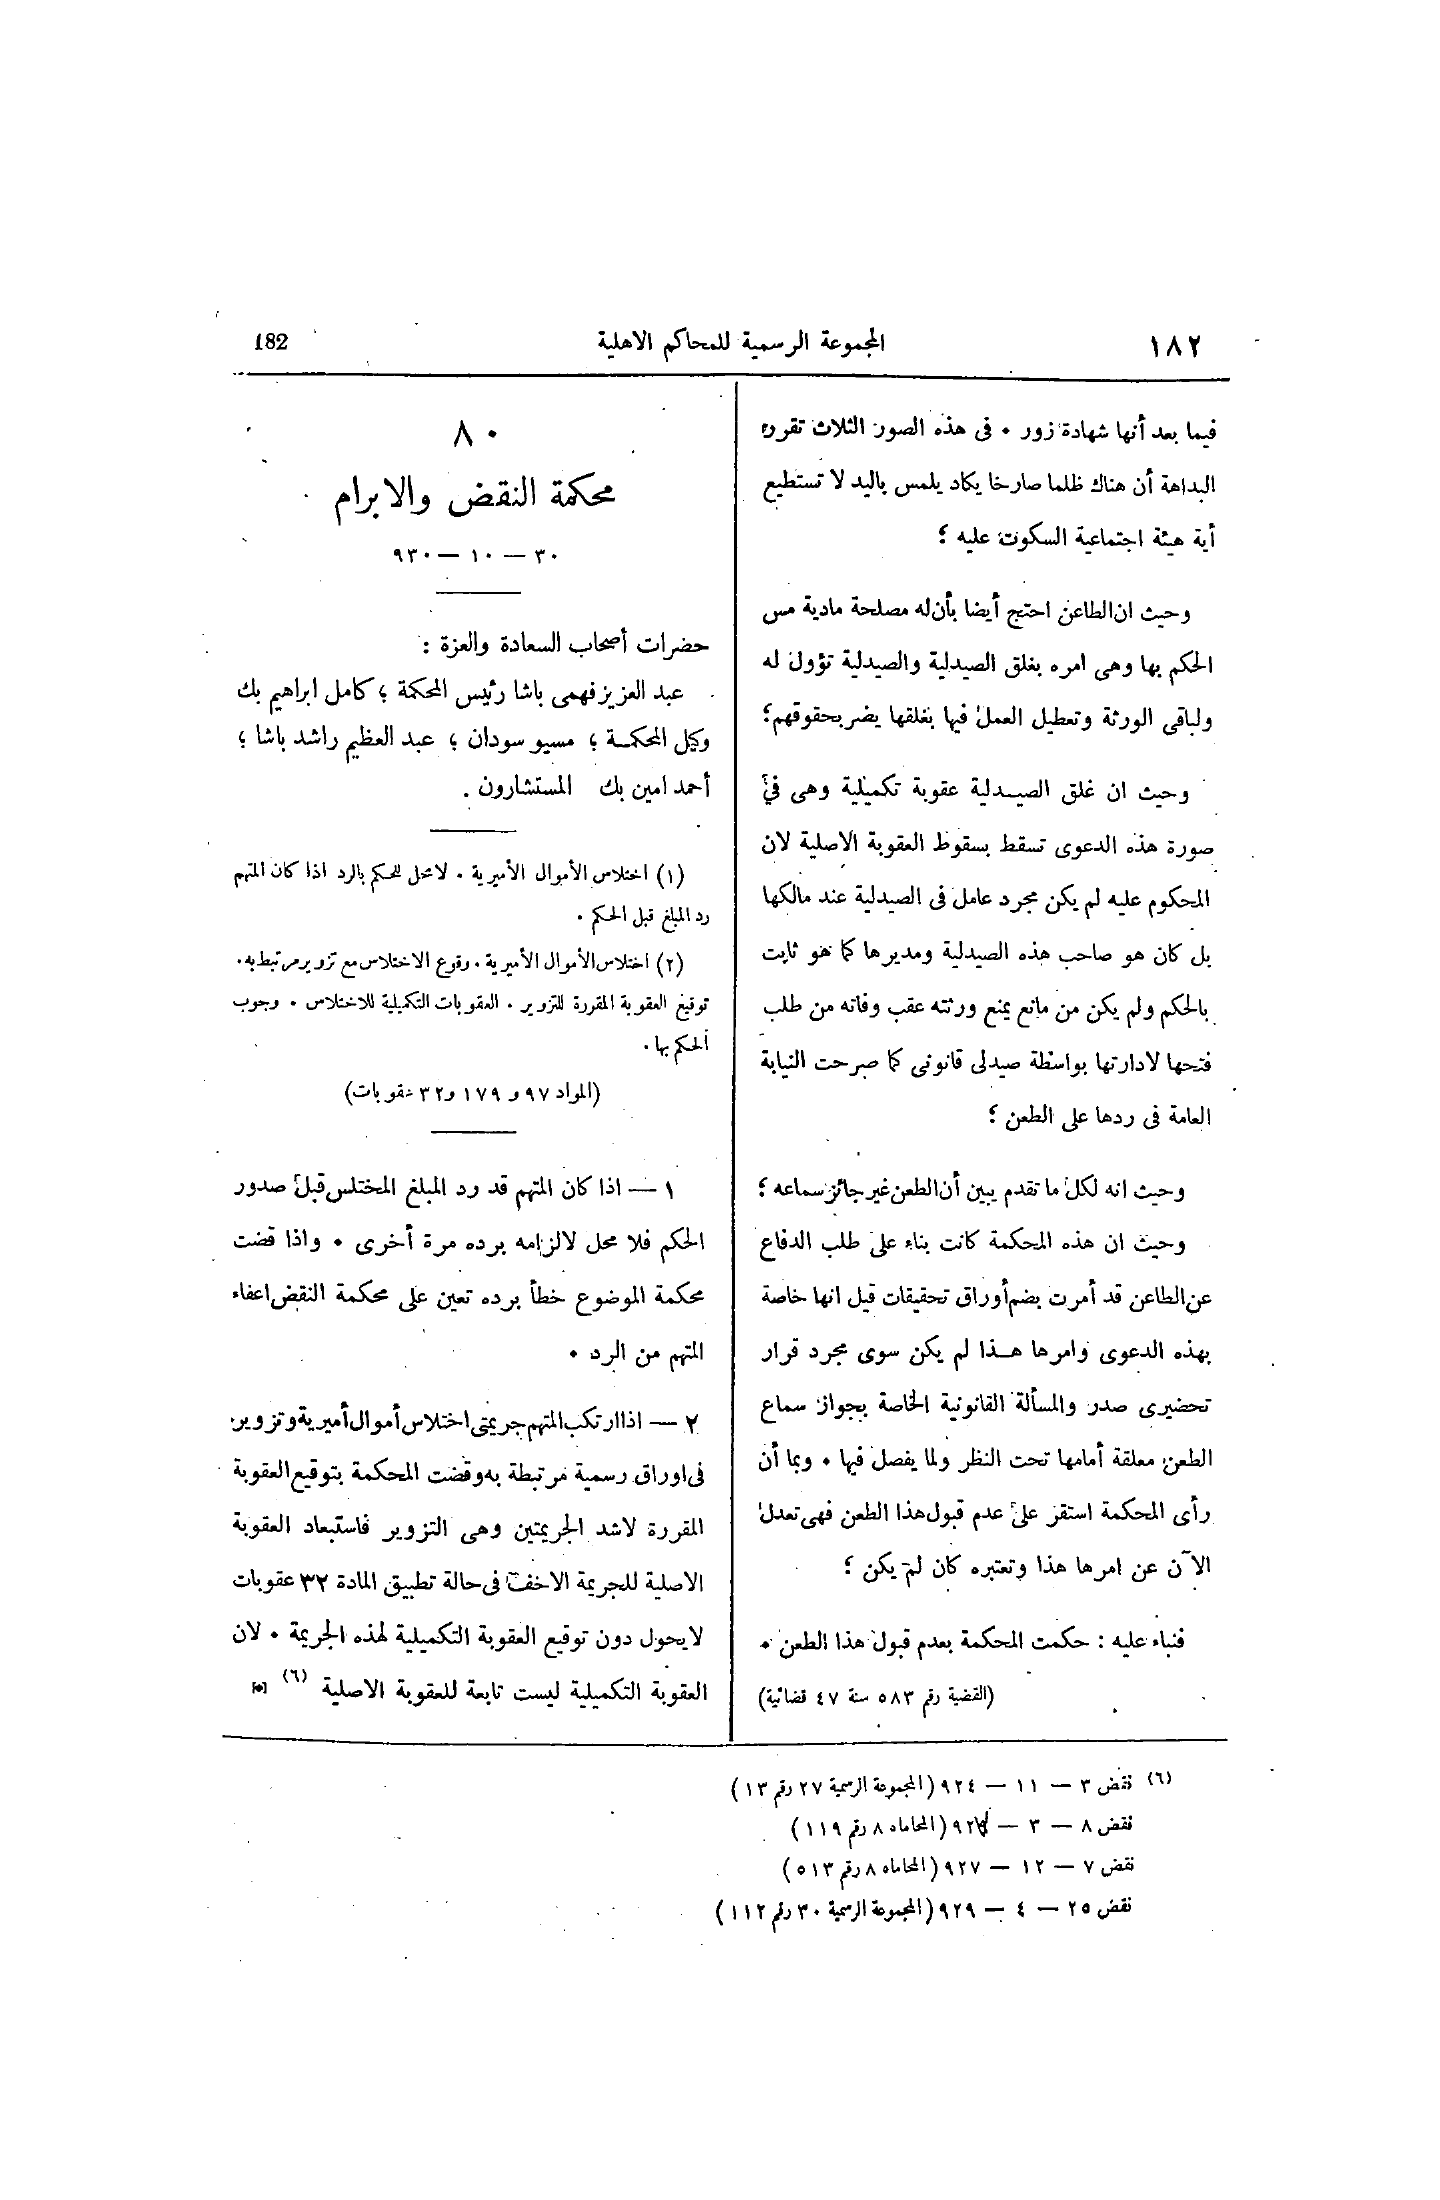 ١٨٢
المجموعة الرسمية للمحاكم الاهلية
182
فيما بعد أنها شهادة زور ٠ فى هذه الصور الثلاث تقرر
البداهة أن هناك ظلما صارخا يكاد يلمس باليد لا تستطيع
أية هيئة اجتماعية السكوت عليه ؛
وحيث ان الطاعن احتج أيضا بأن له مصلحة مادية مس
الحكم بها وهى امره بغلق الصيدلية والصيدلية تؤول له
ولباقى الورثة وتعطيل العمل فيها بغلقها يضر بحقوقهم ؛
وحيث ان غلق الصيدلية عقوبة تكميلية وهى فى
صورة هذه الدعوى تسقط بسقوط العقوبة الاصلية لان
المحكوم عليه لم يكن مجرد عامل فى الصيدلية عند مالكها
بل كان هو صاحب هذه الصيدلية ومديرها كما هو ثابت
بالحكم ولم يكن من مانع يمنع ورثته عقب وفاته من طلب
فتحها لادارتها بواسطة صيدلى قانونى كما صرحت النيابة
العامة فى ردها على الطعن ؛
وحيث انه لكل ما تقدم يبين أن الطعن غير جائز سماعه ؛
وحيث ان هذه المحكمة كانت بناء على طلب الدفاع
عن الطاعن قد أمرت بضم أوراق تحقيقات قيل انها خاصة
بهذه الدعوى وامرها هذا لم يكن سوى مجرد قرار
تحضيرى صدر والمسألة القانونية الخاصة بجواز سماع
الطعن معلقة أمامها تحت النظر ولما يفصل فيها ٠ وبما أن
رأى المحكمة استقر على عدم قبول هذا الطعن فهى تعدل
الآن عن امرها هذا وتعتبره كان لم يكن ؛
فبناء عليه : حكمت المحكمة بعدم قبول هذا الطعن ٠
(القضية رقم ٥٨٣ سنة ٤٧ قضائية)
٨٠
محكمة النقض والابرام
٣٠ — ١٠ — ٩٣٠
حضرات أصحاب السعادة والعزة :
عبد العزيز فهمى باشا رئيس المحكمة ؛ كامل ابراهيم بك
وكيل المحكمة ؛ مسيو سودان ؛ عبد العظيم راشد باشا ؛
أحمد امين بك المستشارون .
(١) اختلاس الأموال الأميرية . لا محل للحكم بالرد اذا كان المتهم
رد المبلغ قبل الحكم .
(٢) اختلاس الأموال الأميرية . وقوع الاختلاس مع تزوير مرتبط به .
توقيع العقوبة المقررة للتزوير . العقوبات التكميلية للاختلاس . وجوب
الحكم بها .
(المواد ٩٧ و ١٧٩ و ٣٢ عقوبات)
١ — اذا كان المتهم قد رد المبلغ المختلس قبل صدور
الحكم فلا محل لالزامه برده مرة أخرى ٠ واذا قضت
محكمة الموضوع خطأ برده تعين على محكمة النقض اعفاء
المتهم من الرد ٠
٢ — اذا ارتكب المتهم جريمتى اختلاس أموال أميرية وتزوير
فى اوراق رسمية مرتبطة به وقضت المحكمة بتوقيع العقوبة
المقررة لاشد الجريمتين وهى التزوير فاستبعاد العقوبة
الاصلية للجريمة الاخف فى حالة تطبيق المادة ٣٢ عقوبات
لا يحول دون توقيع العقوبة التكميلية لهذه الجريمة ٠ لان
العقوبة التكميلية ليست تابعة للعقوبة الاصلية (٦) [*]
(٦) نقض ٣ — ١١ — ٩٢٤ (المجموعة الرسمية ٢٧ رقم ١٣)
نقض ٨ — ٣ — (المحاماه ٨ رقم ١١٩)
نقض ٧ — ١٢ — ٩٢٧ (المحاماه ٨ رقم ٥١٣)
نقض ٢٥ — ٤ — ٩٢٩ (المجموعة الرسمية ٣٠ رقم ١١٢)